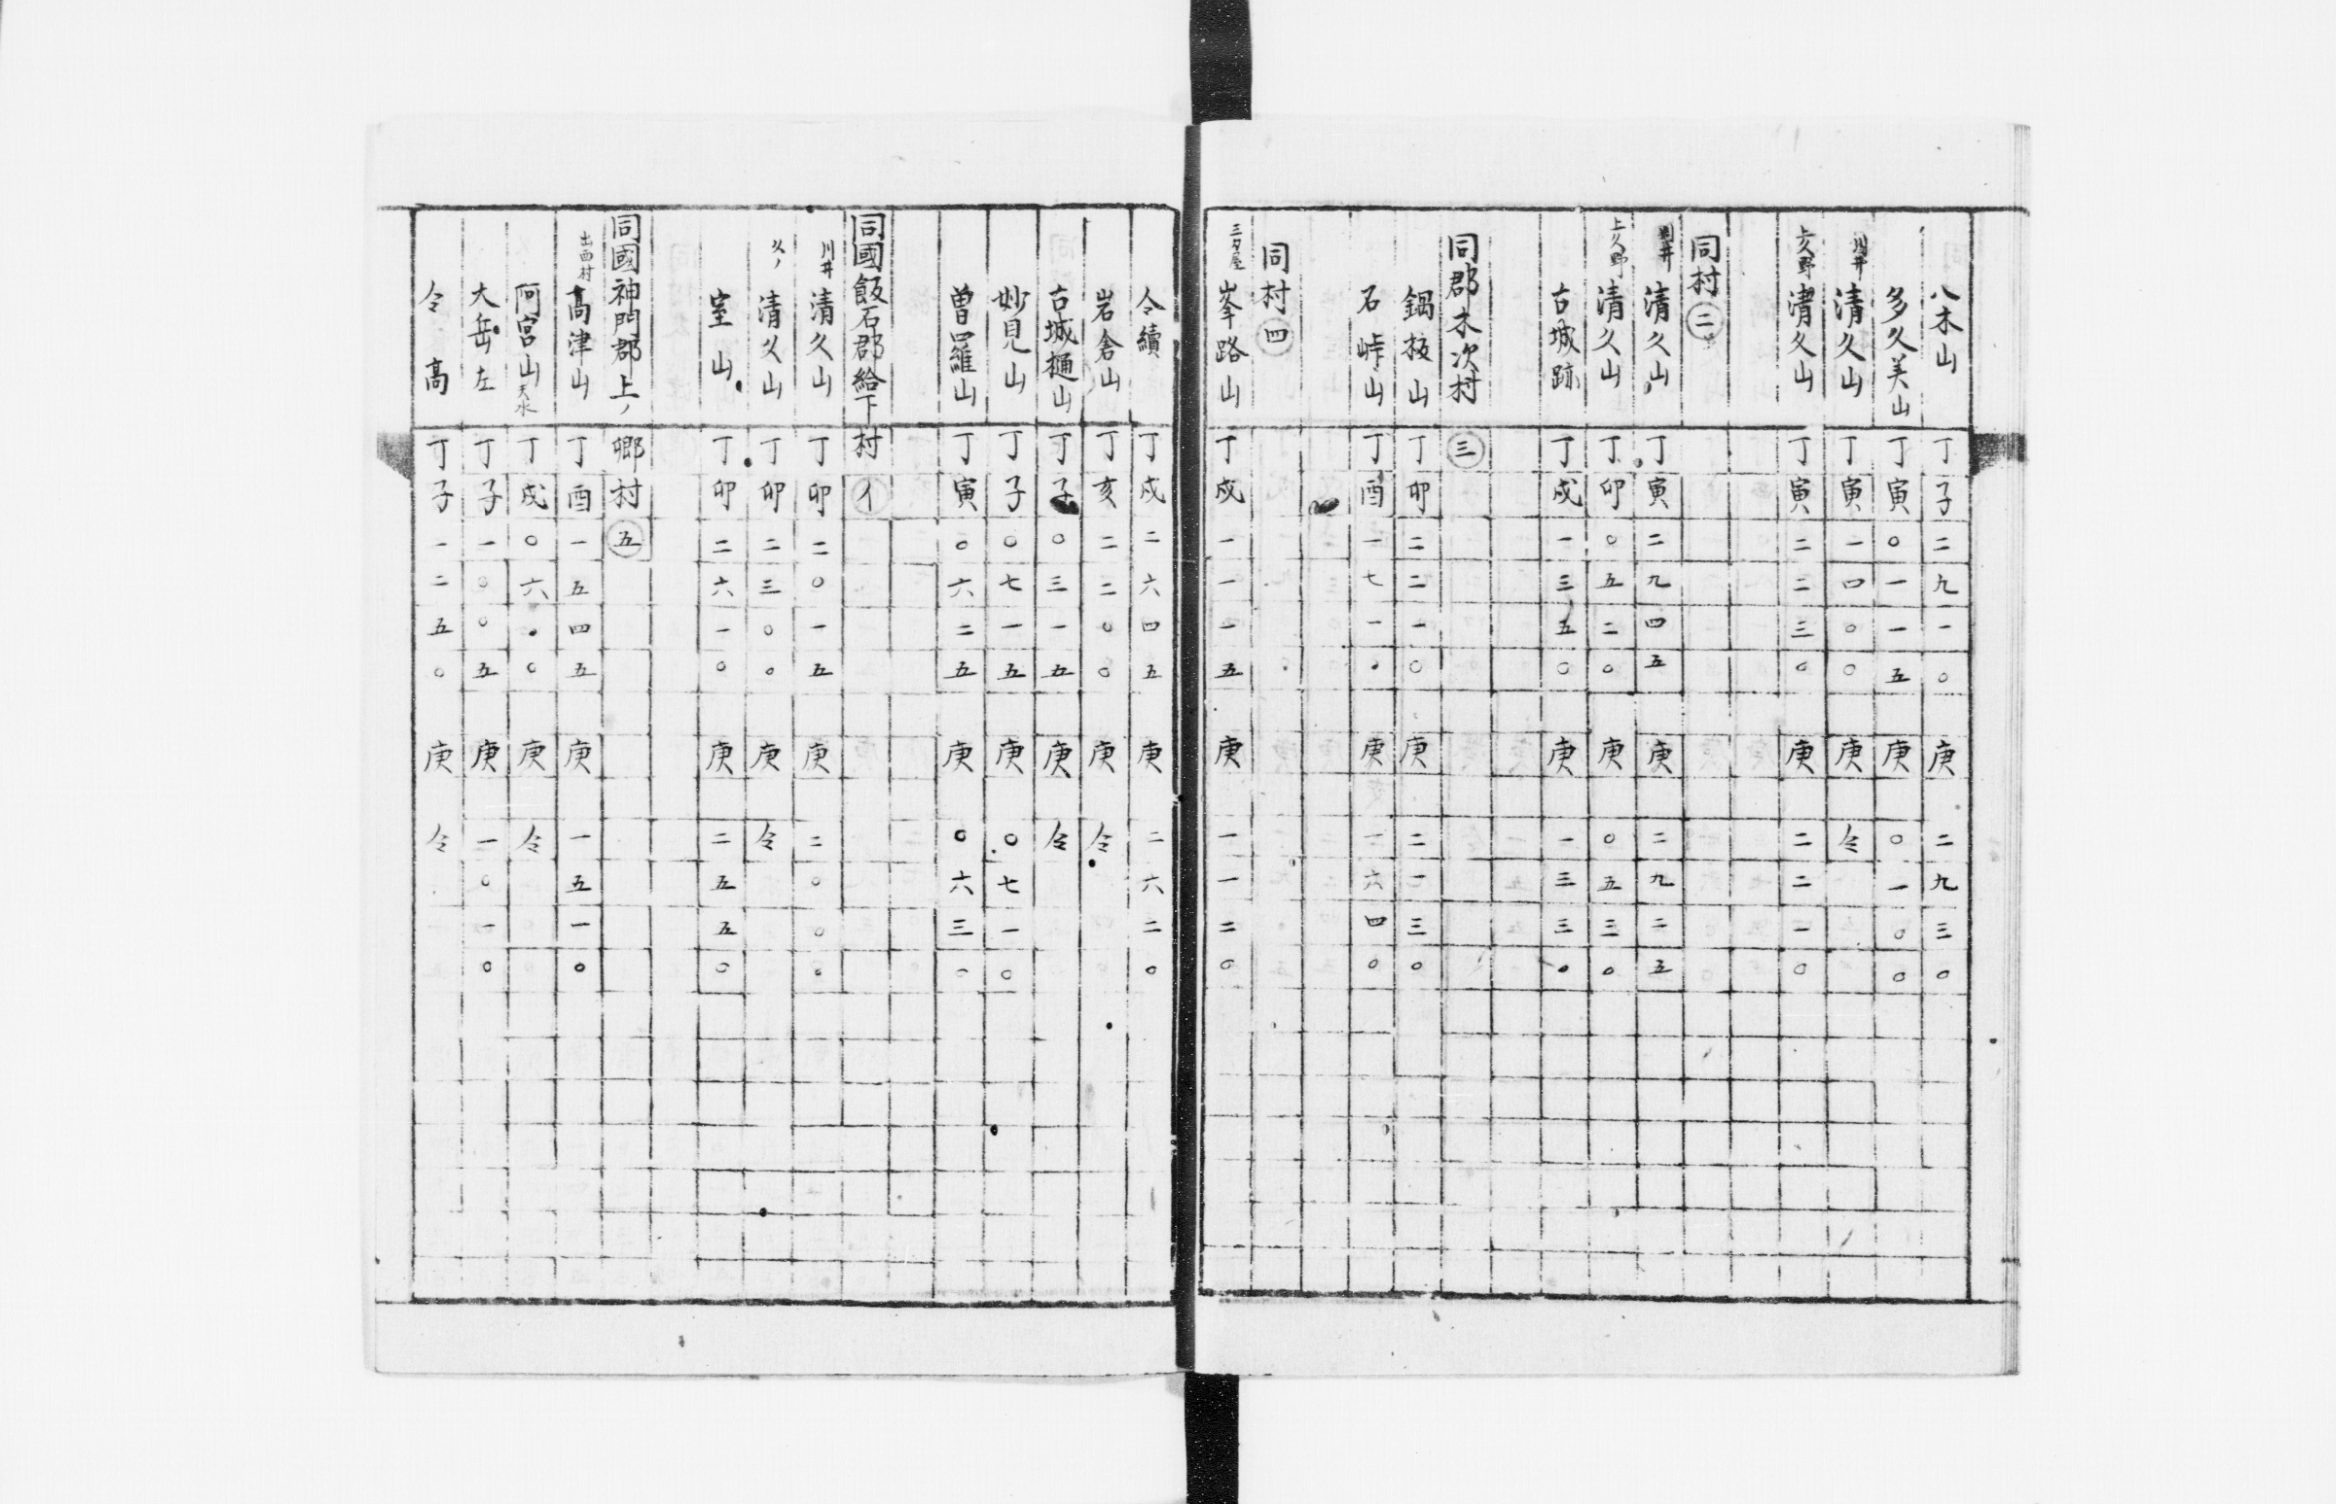 八木山 丁子二九一〇 庚 二九三〇
多久美山 丁寅〇一一五 庚 〇一〇〇
川井 清久山 丁寅一四〇〇 庚 仝
上久野 清久山 丁寅二二三〇 庚 二二一〇
同村 二
川井 清久山 丁寅二九四五 庚 二九二五
上久野 清久山 丁卯〇五二〇 庚 〇五三〇
古城跡 丁戌一三五〇 庚 一三三〇
同郡木次村 三
鍋抜山 丁卯二二一〇 庚 二一三〇
石峠山 丁酉一七一〇 庚 一六四〇
同村 四
三刀屋 峯路山 丁戌一一一五 庚 一一二〇
仝續 丁戌二六四五 庚 二六二〇
岩倉山 丁亥二二〇〇 庚 仝
古城樋山 丁子〇三一五 庚 仝
妙見山 丁子〇七一五 庚 〇七一〇
曽羅山 丁寅〇六二五 庚 〇六三〇
同國飯石郡給下村 イ
川井 清久山 丁卯二〇一五 庚 二〇〇〇
久ノ 清久山 丁卯二三〇〇 庚 仝
室山 丁卯二六一〇 庚 二五五〇
同國神門郡上ノ郷村 五
出西村 高津山 丁酉一五四五 庚 一五一〇
阿宮山 天水 丁戌〇六〇〇 庚 仝
大岳左 丁子一〇〇五 庚 一〇一〇
仝高 丁子一二五〇 庚 仝